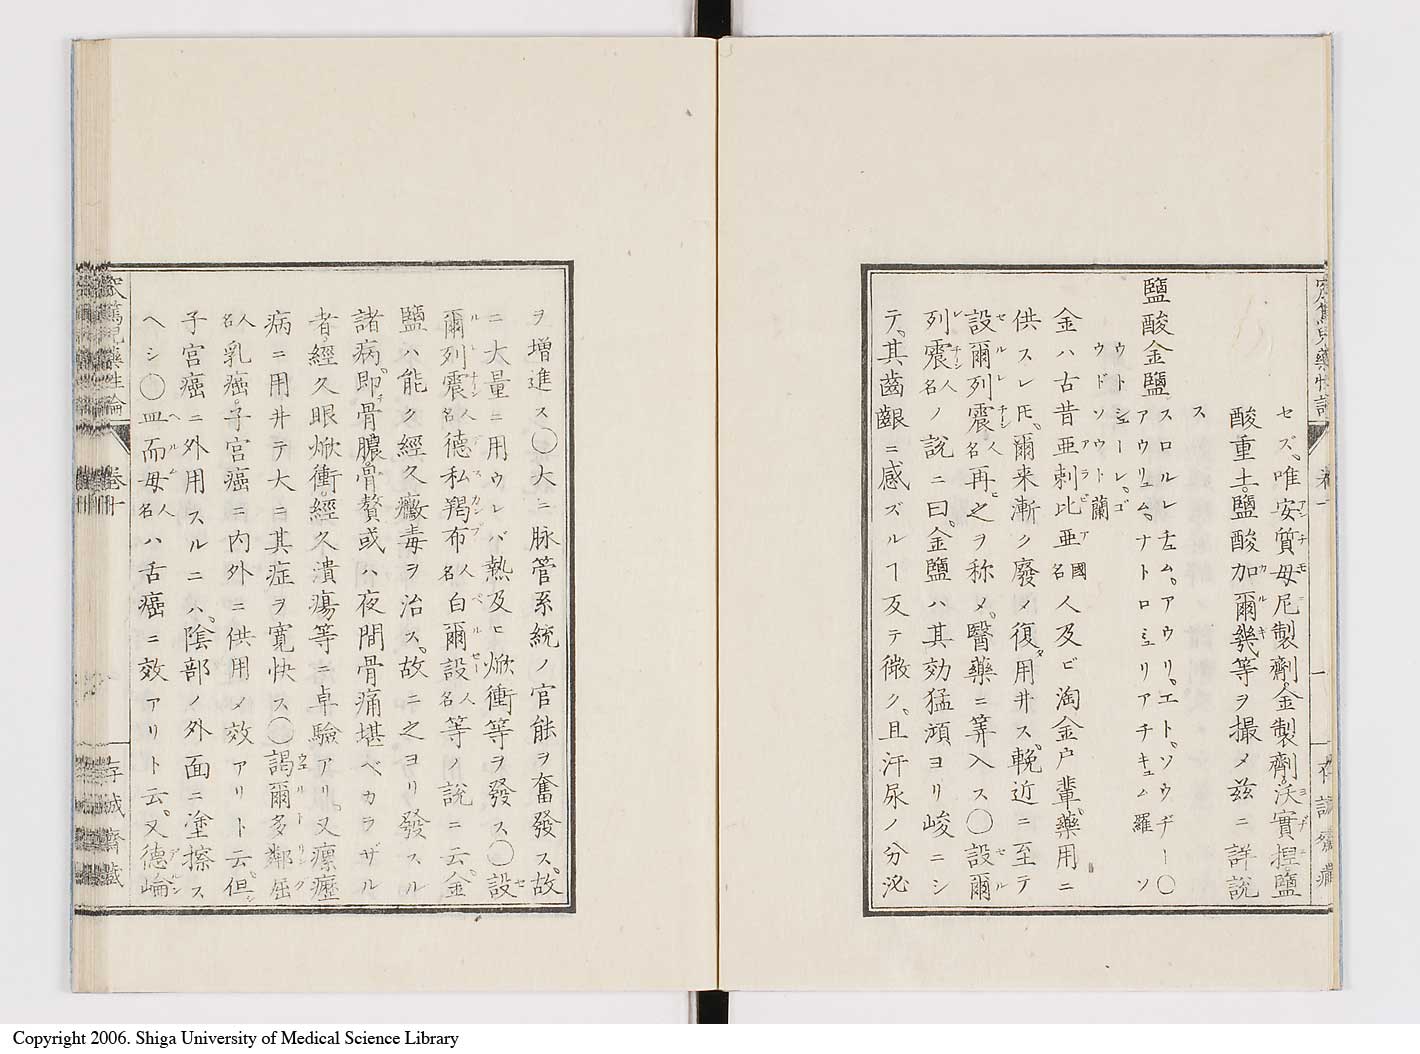 セズ、唯安質母尼製劑、金製劑、沃實捏鹽
酸重土、鹽酸加爾幾等ヲ撮メ茲ニ詳説
ス
鹽酸金鹽
スロルレ𠫓ム、アウリ、エト、ソウヂー〇
アウリュム、ナトロミュリアチキュム 羅 ソ
ウトシューレ、ゴ
ウドソウト 蘭
金ハ古昔亜剌比亜國名人及ビ淘金戸輩、藥用ニ
供スレ𪜈、爾来漸ク廢メ復用井ス、輓近ニ至テ
設爾列震人名再之ヲ称メ、醫藥ニ算入ス〇設爾
列震人名ノ説ニ曰、金鹽ハ其効猛澒ヨリ峻ニシ
テ、其齒齦ニ感ズルヿ反テ微ク、且汗尿ノ分泌
ヲ増進ス〇大ニ脉管系統ノ官能ヲ奮發ス、故
ニ大量ニ用ウレバ熱及ヒ焮衝等ヲ發ス〇設
爾列震人名德私羯布人名白爾設人名等ノ説ニ云、金
鹽ハ能ク經久黴毒ヲ治ス、故ニ之ヨリ發スル
諸病、即骨膿骨贅或ハ夜間骨痛堪ベカラザル
者、經久眼焮衝、經久潰瘍等ニ卓驗アリ、又瘰癧
病ニ用井テ大ニ其症ヲ寛快ス〇謁爾多鄰屈
人名乳癌、子宮癌ニ内外ニ供用メ效アリト云、但
子宮癌ニ外用スルニハ、陰部ノ外面ニ塗擦ス
ヘシ〇皿而母人名ハ舌癌ニ效アリト云、又德崘
窊篤兒藥性論
卷十
存誠齋藏